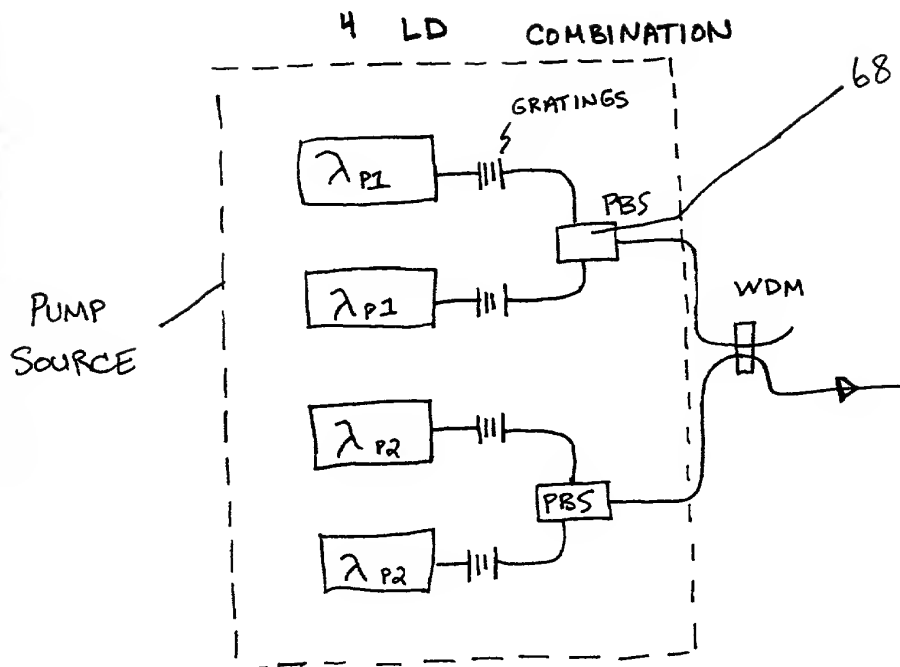 4 LD COMBINATION
68
GRATINGS
λP1
PBS
λP1
WDM
PUMP
SOURCE
λP2
PBS
λP2